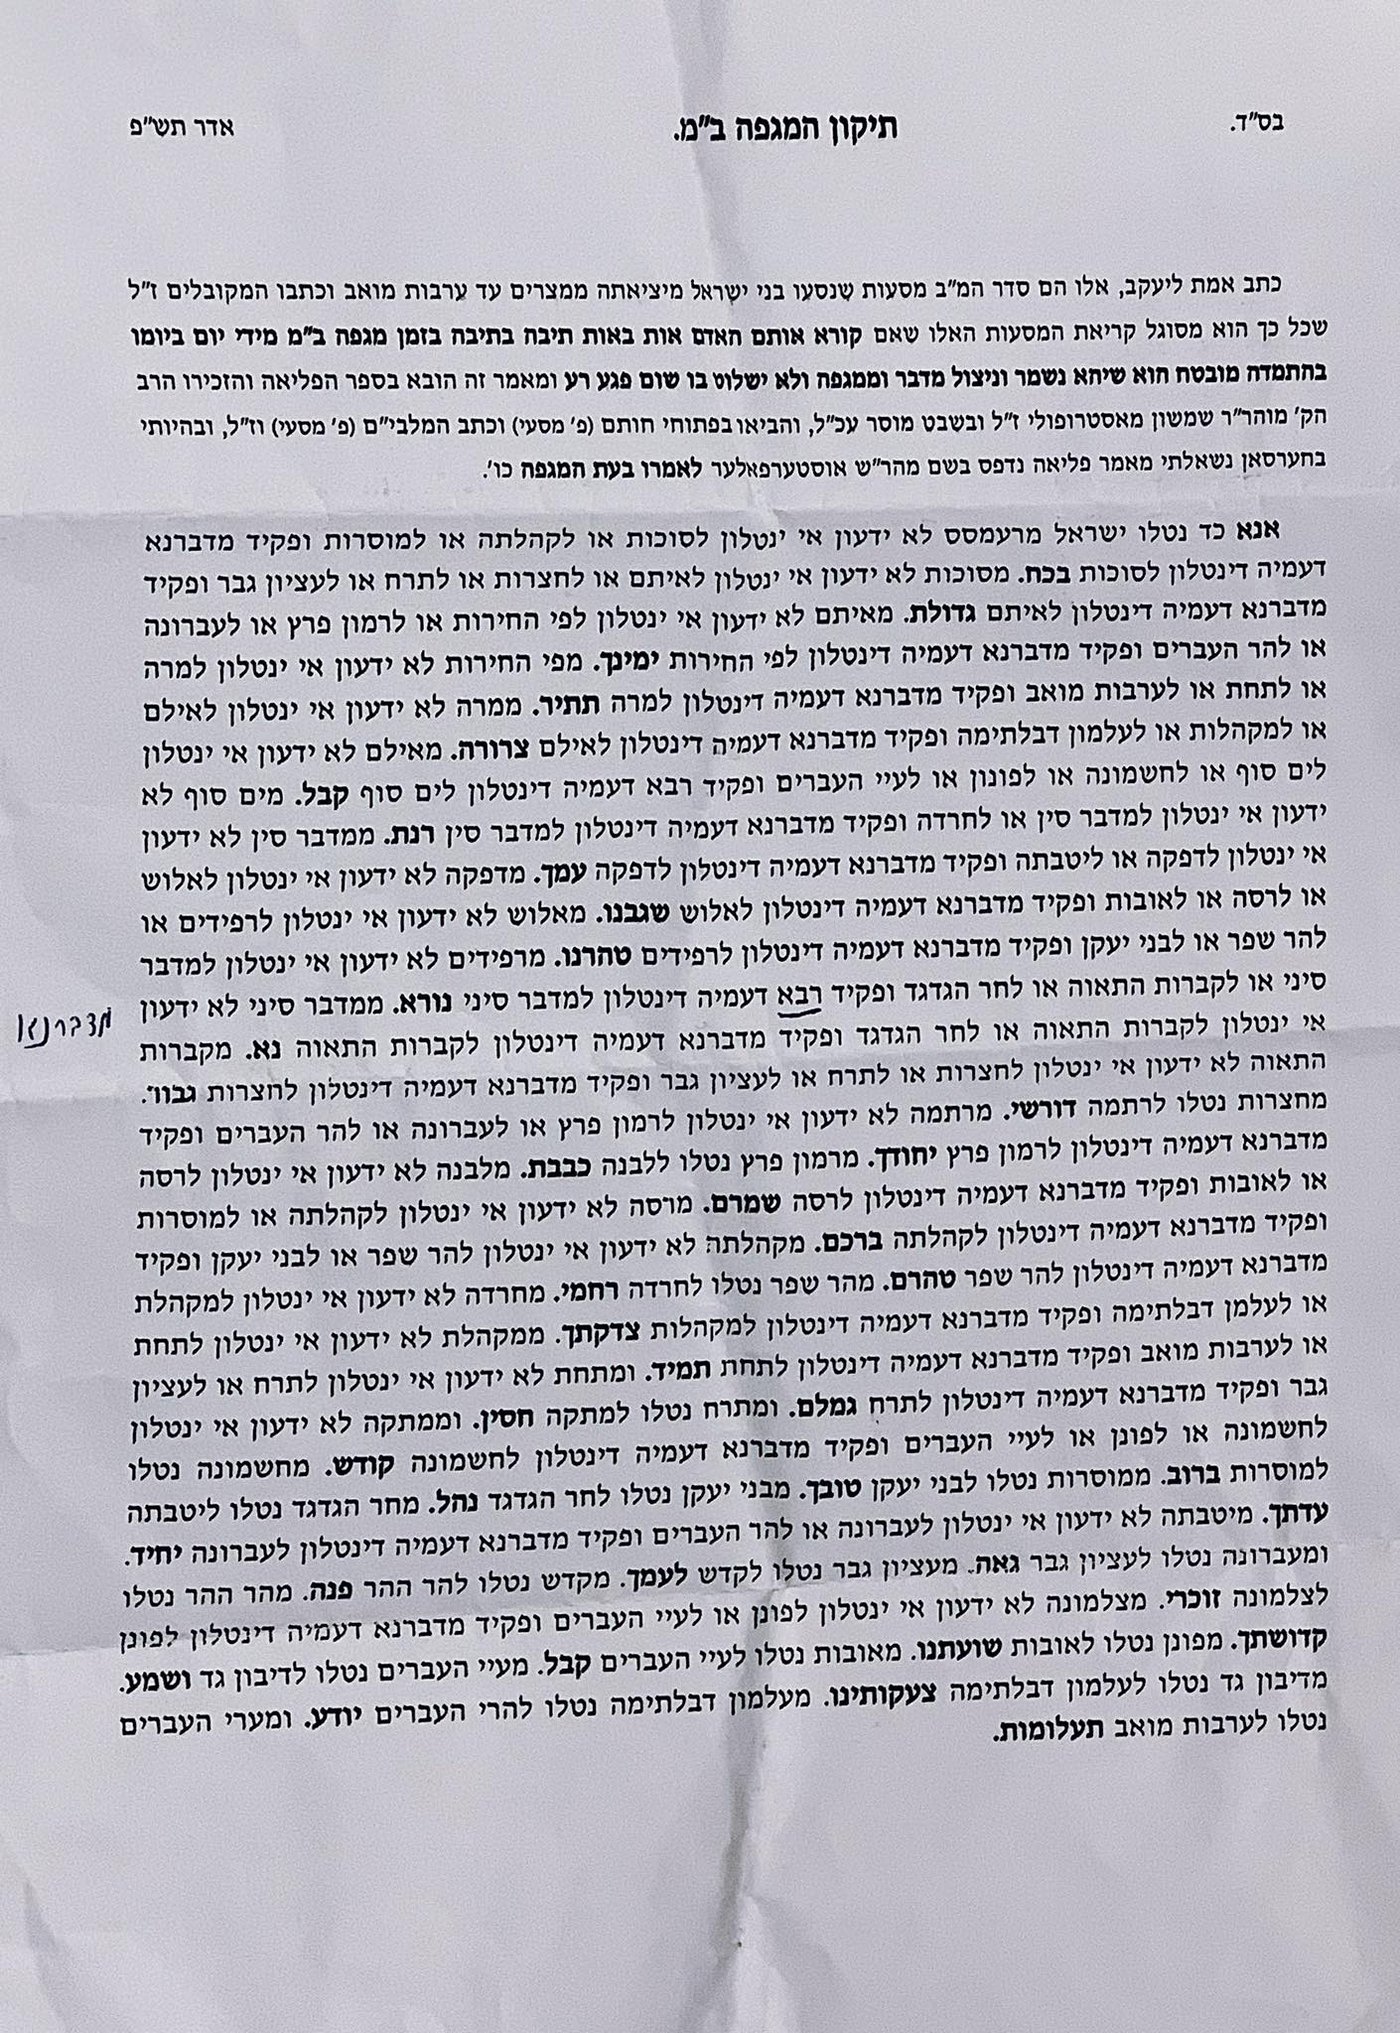 בס״ד.
תיקון המגפה ב״מ.
אדר תש״פ
כתב אמת ליעקב, אלו הם סדר המ״ב מסעות שנסעו בני ישראל מיציאתה ממצרים עד ערבות מואב וכתבו המקובלים ז״ל
שכל כך הוא מסוגל קריאת המסעות האלו שאם קורא אותם האדם אות באות תיבה בתיבה בזמן מגפה ב״מ מידי יום ביומו
בהתמדה מובטח הוא שיהא נשמר וניצול מדבר וממגפה ולא ישלוט בו שום פגע רע ומאמר זה הובא בספר הפליאה והזכירו הרב
הק׳ מוהר״ר שמשון מאסטרופולי ז״ל ובשבט מוסר עכ״ל, והביאו בפתוחי חותם (פ׳ מסעי) וכתב המלבי״ם (פ׳ מסעי) וז״ל, ובהיותי
בחערסאן נשאלתי מאמר פליאה נדפס בשם מהר״ש אוסטערפאלער לאמרו בעת המגפה כו׳.
אנא כד נטלו ישראל מרעמסס לא ידעון אי ינטלון לסוכות או לקהלתה או למוסרות ופקיד מדברנא
דעמיה דינטלון לסוכות בכח. מסוכות לא ידעון אי ינטלון לאיתם או לחצרות או לתרח או לעציון גבר ופקיד
מדברנא דעמיה דינטלון לאיתם גדולת. מאיתם לא ידעון אי ינטלון לפי החירות או לרמון פרץ או לעברונה
או להר העברים ופקיד מדברנא דעמיה דינטלון לפי החירות ימינך. מפי החירות לא ידעון אי ינטלון למרה
או לתחת או לערבות מואב ופקיד מדברנא דעמיה דינטלון למרה תתיר. ממרה לא ידעון אי ינטלון לאילם
או למקהלות או לעלמון דבלתימה ופקיד מדברנא דעמיה דינטלון לאילם צרורה. מאילם לא ידעון אי ינטלון
לים סוף או לחשמונה או לפונון או לעיי העברים ופקיד רבא דעמיה דינטלון לים סוף קבל. מים סוף לא
ידעון אי ינטלון למדבר סין או לחרדה ופקיד מדברנא דעמיה דינטלון למדבר סין רנת. ממדבר סין לא ידעון
אי ינטלון לדפקה או ליטבתה ופקיד מדברנא דעמיה דינטלון לדפקה עמך. מדפקה לא ידעון אי ינטלון לאלוש
או לרסה או לאובות ופקיד מדברנא דעמיה דינטלון לאלוש שגבנו. מאלוש לא ידעון אי ינטלון לרפידים או
להר שפר או לבני יעקן ופקיד מדברנא דעמיה דינטלון לרפידים טהרנו. מרפידים לא ידעון אי ינטלון למדבר
סיני או לקברות התאוה או לחר הגדגד ופקיד רבא דעמיה דינטלון למדבר סיני נורא. ממדבר סיני לא ידעון
מדברנא
אי ינטלון לקברות התאוה או לחר הגדגד ופקיד מדברנא דעמיה דינטלון לקברות התאוה נא. מקברות
התאוה לא ידעון אי ינטלון לחצרות או לתרח או לעציון גבר ופקיד מדברנא דעמיה דינטלון לחצרות גבור.
מחצרות נטלו לרתמה דורשי. מרתמה לא ידעון אי ינטלון לרמון פרץ או לעברונה או להר העברים ופקיד
מדברנא דעמיה דינטלון לרמון פרץ יחודך. מרמון פרץ נטלו ללבנה כבבת. מלבנה לא ידעון אי ינטלון לרסה
או לאובות ופקיד מדברנא דעמיה דינטלון לרסה שמרם. מרסה לא ידעון אי ינטלון לקהלתה או למוסרות
ופקיד מדברנא דעמיה דינטלון לקהלתה ברכם. מקהלתה לא ידעון אי ינטלון להר שפר או לבני יעקן ופקיד
מדברנא דעמיה דינטלון להר שפר טהרם. מהר שפר נטלו לחרדה רחמי. מחרדה לא ידעון אי ינטלון למקהלת
או לעלמן דבלתימה ופקיד מדברנא דעמיה דינטלון למקהלות צדקתך. ממקהלת לא ידעון אי ינטלון לתחת
או לערבות מואב ופקיד מדברנא דעמיה דינטלון לתחת תמיד. ומתחת לא ידעון אי ינטלון לתרח או לעציון
גבר ופקיד מדברנא דעמיה דינטלון לתרח גמלם. ומתרח נטלו למתקה חסין. וממתקה לא ידעון אי ינטלון
לחשמונה או לפונן או לעיי העברים ופקיד מדברנא דעמיה דינטלון לחשמונה קודש. מחשמונה נטלו
למוסרות ברוב. ממוסרות נטלו לבני יעקן טובך. מבני יעקן נטלו לחר הגדגד נהל. מחר הגדגד נטלו ליטבתה
עדתך. מיטבתה לא ידעון אי ינטלון לעברונה או להר העברים ופקיד מדברנא דעמיה דינטלון לעברונה יחיד.
ומעברונה נטלו לעציון גבר גאה. מעציון גבר נטלו לקדש לעמך. מקדש נטלו להר ההר פנה. מהר ההר נטלו
לצלמונה זוכרי. מצלמונה לא ידעון אי ינטלון לפונן או לעיי העברים ופקיד מדברנא דעמיה דינטלון לפונן
קדושתך. מפונן נטלו לאובות שועתנו. מאובות נטלו לעיי העברים קבל. מעיי העברים נטלו לדיבון גד ושמע.
מדיבון גד נטלו לעלמון דבלתימה צעקותינו. מעלמון דבלתימה נטלו להרי העברים יודע. ומערי העברים
נטלו לערבות מואב תעלומות.